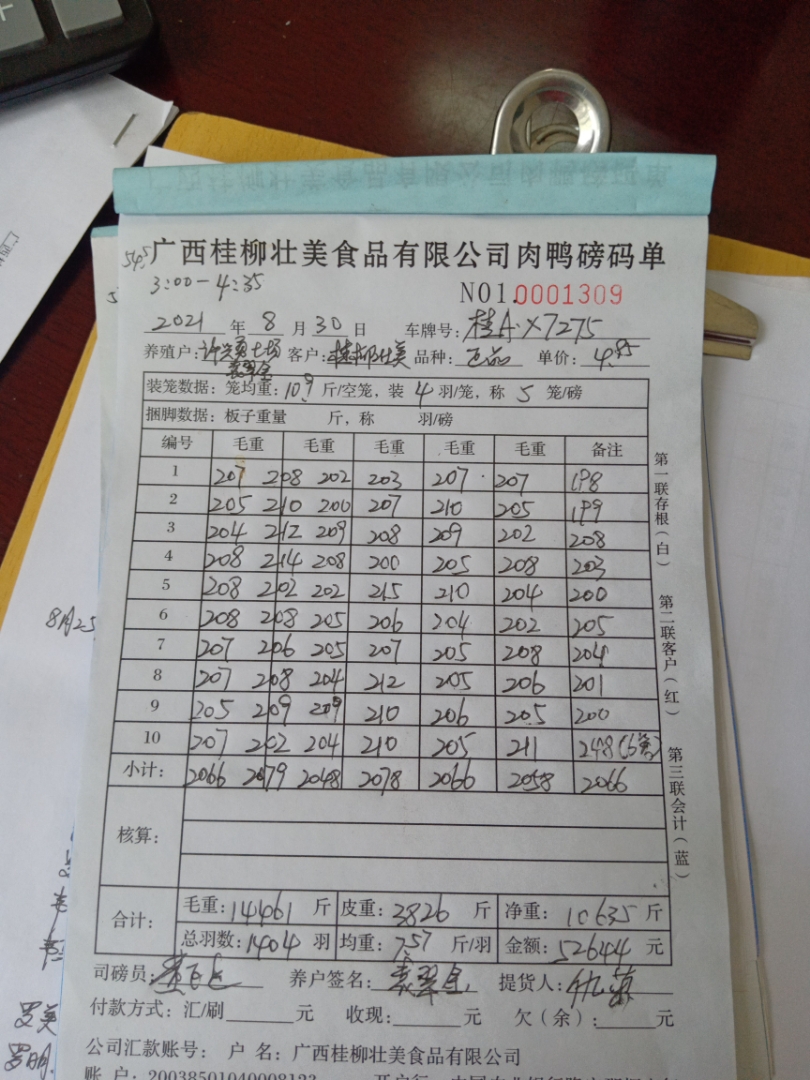 545 广西桂柳壮美食品有限公司肉鸭磅码单
3:00-4:35
NO1.0001309
2021 年 8 月 30 日 车牌号: 桂A X7275
养殖户: 客户: 桂柳壮美 品种: 单价: 4.95
装笼数据: 笼均重: 10.9 斤/空笼, 装 4 羽/笼, 称 5 笼/磅
捆脚数据: 板子重量 斤, 称 羽/磅
编号 毛重 毛重 毛重 毛重 毛重 备注
1 207 208 202 203 207 207 198
2 205 210 200 207 210 205 199
3 204 212 209 208 209 202 208
4 208 214 208 200 205 208 203
5 208 202 202 215 210 204 200
6 208 208 205 206 204 202 205
7 207 206 205 207 205 208 204
8 207 208 204 212 205 206 201
9 205 209 209 210 206 205 200
10 207 202 204 210 205 211 248(6笼)
小计: 2066 2079 2048 2078 2066 2058 2066
核算:
合计: 毛重: 14461 斤 皮重: 3826 斤 净重: 10635 斤
总羽数: 1404 羽 均重: 7.57 斤/羽 金额: 52644 元
司磅员: 养户签名: 袁翠金 提货人:
付款方式: 汇/刷 元 收现: 元 欠(余): 元
公司汇款账号: 户 名: 广西桂柳壮美食品有限公司
第一联存根(白)
第二联客户(红)
第三联会计(蓝)
8月25